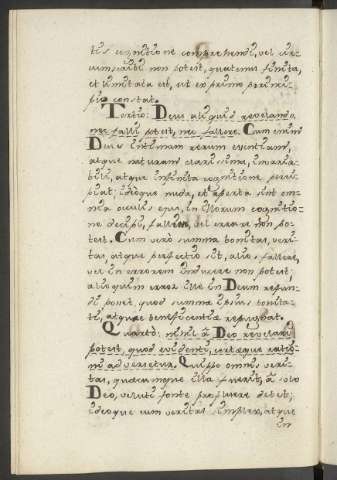 tis cognitione comprehendi, vel cir-
cumscribi non potest, quatenus finita,
et limitata est, ut ex primo princi-
pio constat.
Tertiò: Deus aliquid revelando,
nec falli potest, nec fallere. Cum enim
Deus intimam rerum essentiam,
atque naturam clarissima, invaria-
bili, atque infinita cognitione perci-
piat; ideòque nuda, et aperta sint om-
nia oculis ejus, in illorum cognitio-
ne decipi, falli, vel errare non po-
test. Cum verò summa bonitas, veri-
tas, atque perfectio sit, alios fallere,
vel in errorem inducere non potest;
alioquin error ille in Deum refun-
di posset, quod summae ipsius bonita-
ti, atque beneficentiae repugnat.
Quartò: nihil à Deo revelari
potest, quod evidenti, certaeque ratio-
ni adversetur. Quippe omnis veri-
tas, quaecumque illa fuerit, à solo
Deo, veluti fonte profluere debet;
ideoque cum veritas simplex, atque
in